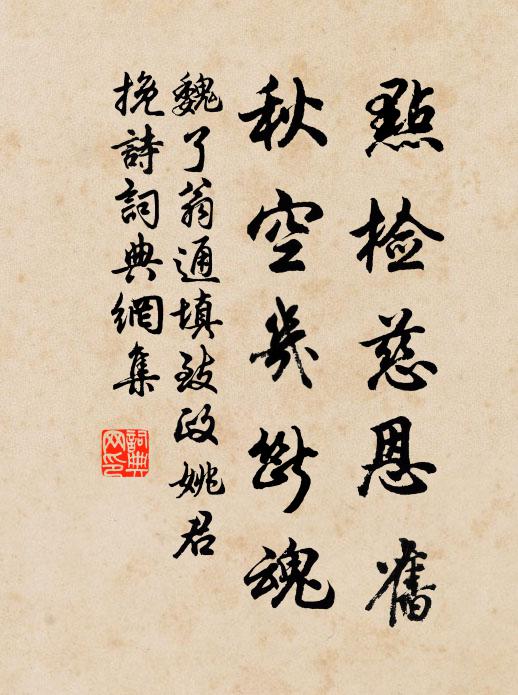 點檢慈恩舊
秋空幾斷魂
魏了翁通填致政姚君
挽詩詞典網集
詞典網印